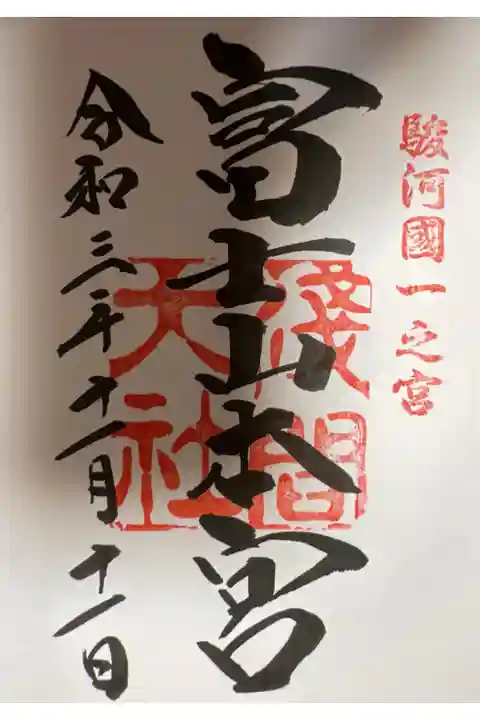 駿河國一之宮
富士山本宮
淺間大社
令和三年十一月十一日